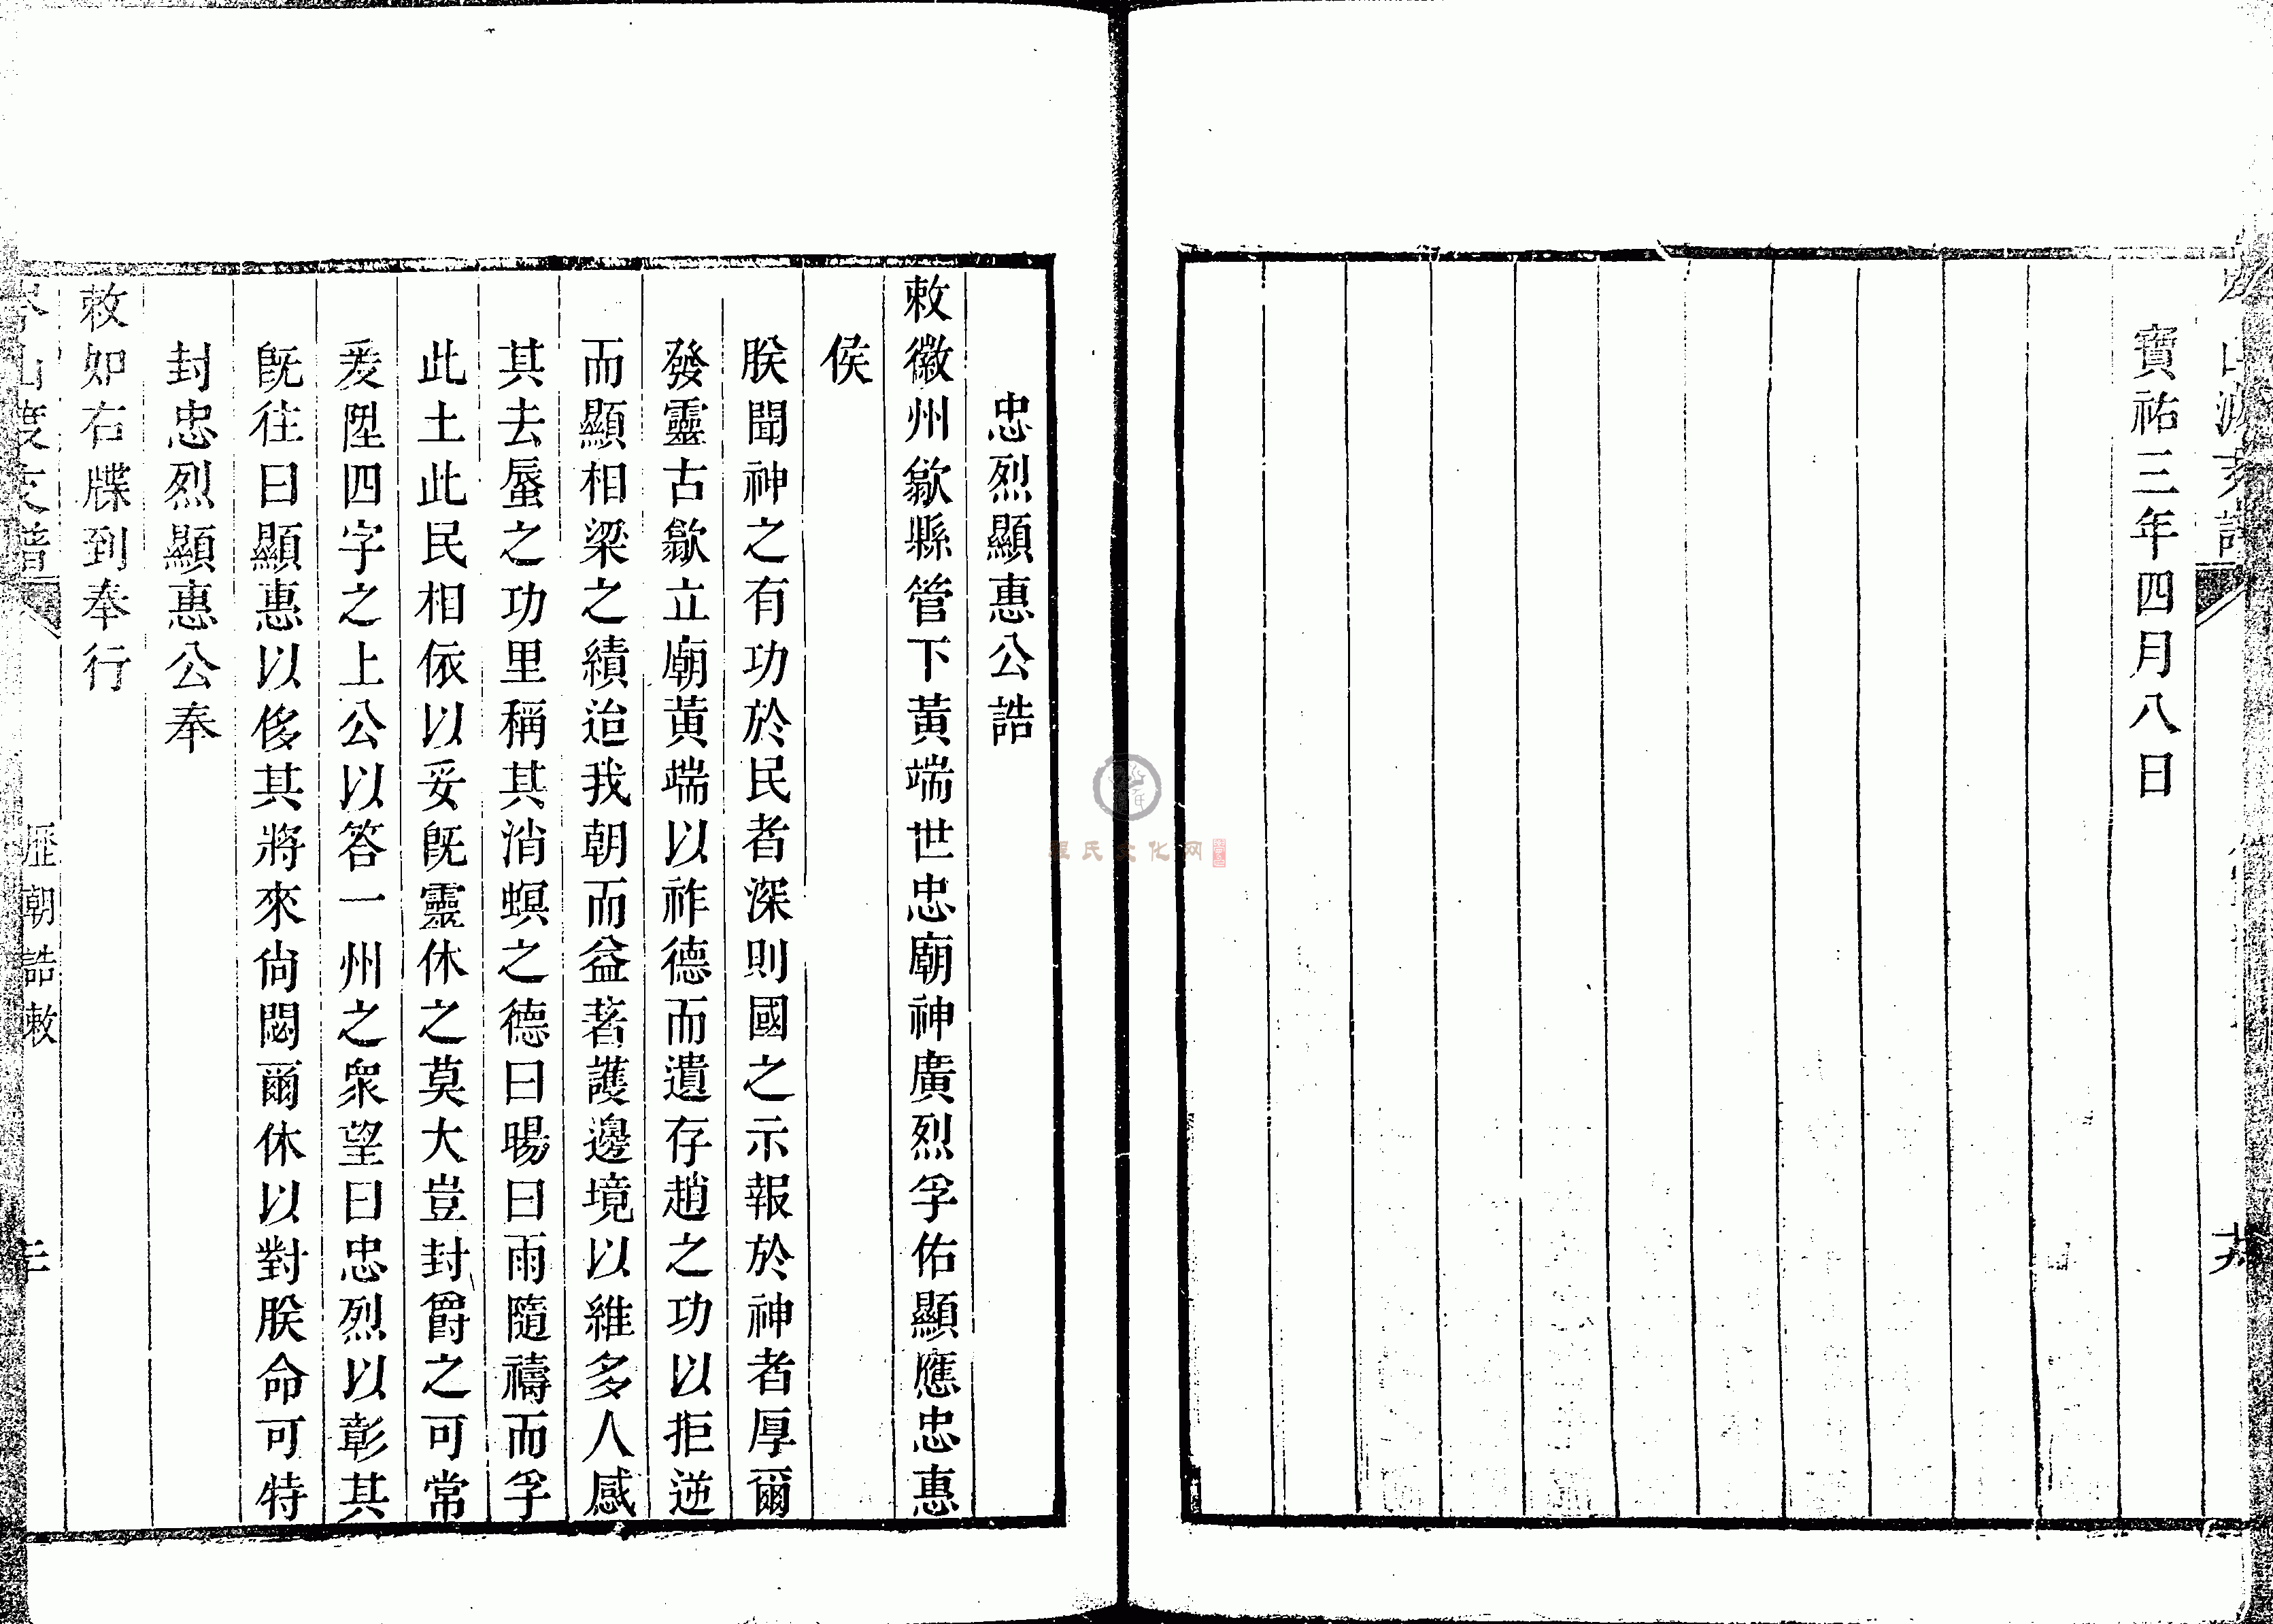 寶祐三年四月八日
忠烈顯惠公誥
敕徽州歙縣管下黃端世忠廟神廣烈孚佑顯應忠惠
侯
朕聞神之有功於民者深則國之示報於神者厚爾
發靈古歙立廟黃端以祚德而遺存趙之功以拒逆
而顯相梁之績迨我朝而益著護邊境以維多人感
其去蜃之功里稱其消螟之德曰暘曰雨隨禱而孚
此土此民相依以妥旣靈休之莫大豈封爵之可常
爰陞四字之上公以答一州之衆望曰忠烈以彰其
旣往曰顯惠以侈其將來尙閟爾休以對朕命可特
封忠烈顯惠公奉
敕如右牒到奉行
歷朝誥敕
程氏文化网